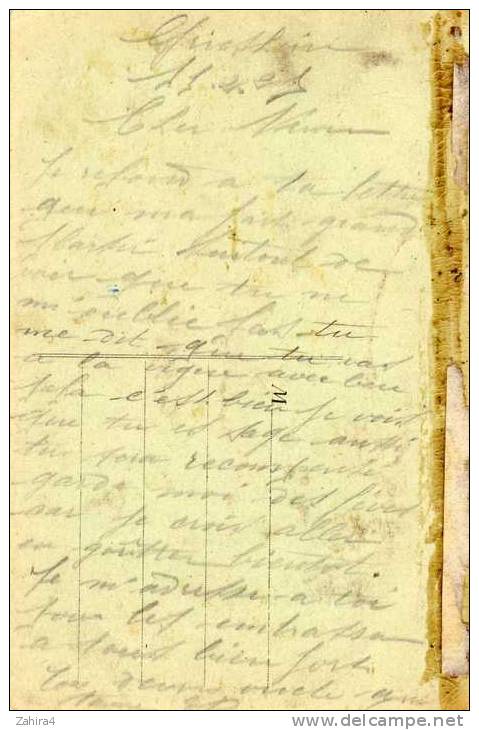 Cher
Je repond a ta lettre
que ma fait grand
plaisir surtout de
voir que tu ne
m'oublie pas tu
me dit que tu vas
a la vigne avec ton
papa c'est bien je vois
que tu es sage aussi
tu sera recompensé
garde moi des
car je crois aller
en goûter bientot
Je m'adresse a toi
pour les embrasser
a tous bien fort
Ton oncle qui
M
Zahira4
www.delcampe.net